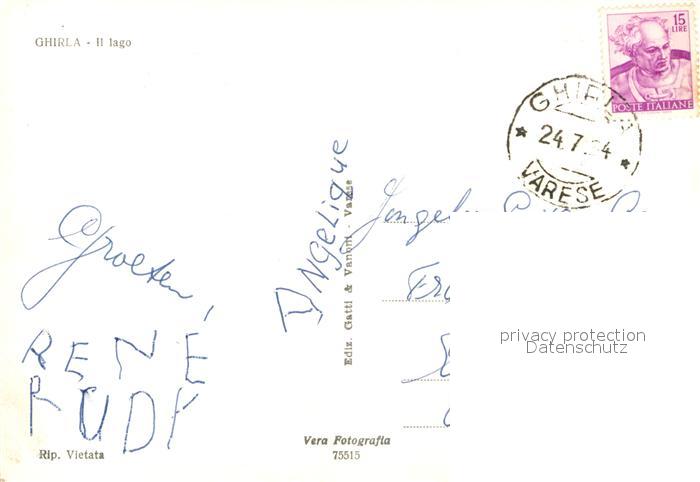 GHIRLA - Il lago
15
LIRE
POSTE ITALIANE
24.7
VARESE
Groeten,
RENÉ
RUDY
Angelique
Ediz. Gatti & Vanoni - Varese
privacy protection
Datenschutz
Vera Fotografia
75515
Rip. Vietata